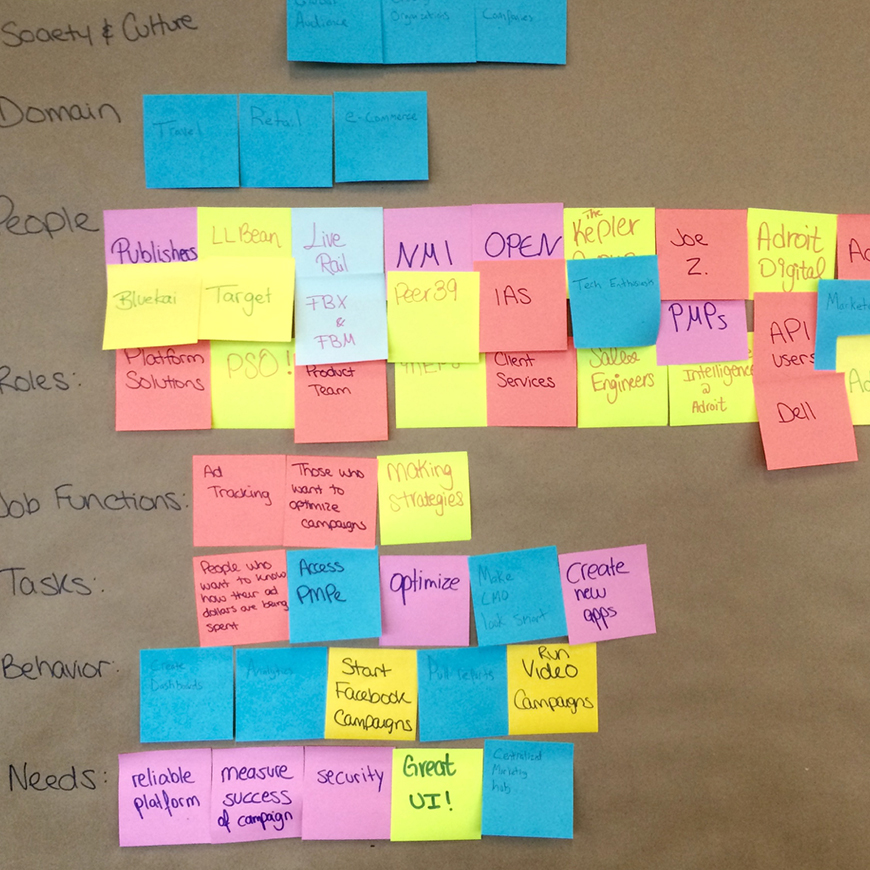 Society & Culture
Audience
Companies
Domain
Travel
Retail
e-Commerce
People
Publishers
LLBean
Live
Rail
NMI
OPEN
The
Kepler
Joe
Z.
Adroit
Digital
Bluekai
Target
FBX
&
FBM
Peer39
IAS
Tech
PMPs
API
users
Roles:
Platform
Solutions
PSO!
Product
Team
Client
Services
Sales
Engineers
Intelligence
@
Adroit
Dell
Job Functions:
Ad
Tracking
Those who
want to
optimize
campaigns
Making
Strategies
Tasks:
People who
want to know
how their ad
dollars are being
spent
Access
PMPe
optimize
Make
CMO
look smart
Create
new
apps
Behavior:
Create
Dashboards
Analytics
Start
Facebook
Campaigns
Pull reports
Run
Video
Campaigns
Needs:
reliable
platform
measure
success
of campaign
security
Great
UI!
Centralized
Marketing
hub